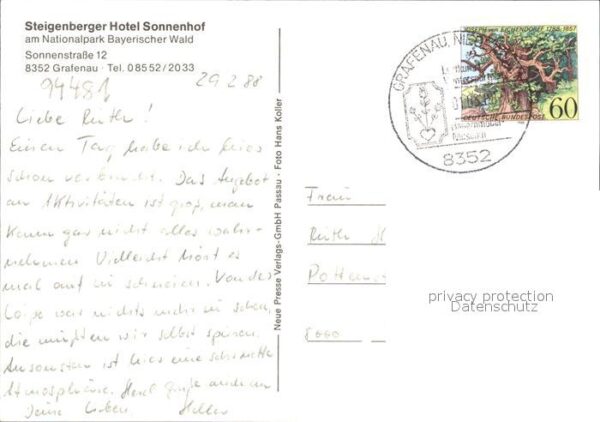 Steigenberger Hotel Sonnenhof
am Nationalpark Bayerischer Wald
Sonnenstraße 12
8352 Grafenau · Tel. 08552/2033
94481
29.2.88
Liebe Ruth!
Einen Tag habe ich hier
schon verbracht. Das Angebot
an Aktivitäten ist groß, man
kann gar nicht alles wahr-
nehmen. Vielleicht hört es
mal auf zu schneien. Von der
Loipe war nichts mehr zu sehen,
die mußten wir selbst spuren.
Ansonsten ist hier eine sehr nette
Atmosphäre. Herzl. Grüße an
Deine Lieben
Neue Presse Verlags-GmbH Passau · Foto Hans Koller
JOSEPH VON EICHENDORFF 1788-1857
DEUTSCHE BUNDESPOST
60
GRAFENAU, NIED
8352
Frau
Ruth
8000
privacy protection
Datenschutz